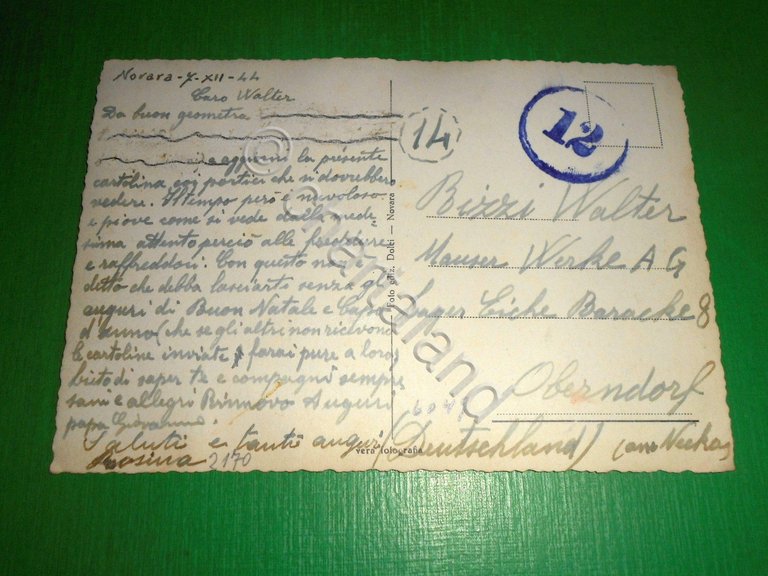 Novara - 7 - XII - 44
Caro Walter
Da buon geometra
aggiumi la presente
cartolina coi portici che si dovrebbero
vedere. Il tempo però è nuvoloso
e piove come si vede dalla mede
sima attento perciò alle freddure
e raffreddori. Con questo non è
detto che debba lasciarti senza gli
auguri di Buon Natale e Capo
d'anno (che se gli altri non ricevono
le cartoline inviate farai pure a loro)
lieto di saper te e compagni sempre
sani e allegri Rinnovo Auguri
papà Giovanni
Saluti e tanti auguri
Rosina 2170
14
12
Bizzi Walter
Mauser Werke A G
Lager Eiche Baracke 8
Oberndorf
(Deutschland) (am Neckar)
Foto ediz. Dolci — Novara
vera fotografia
© amaland